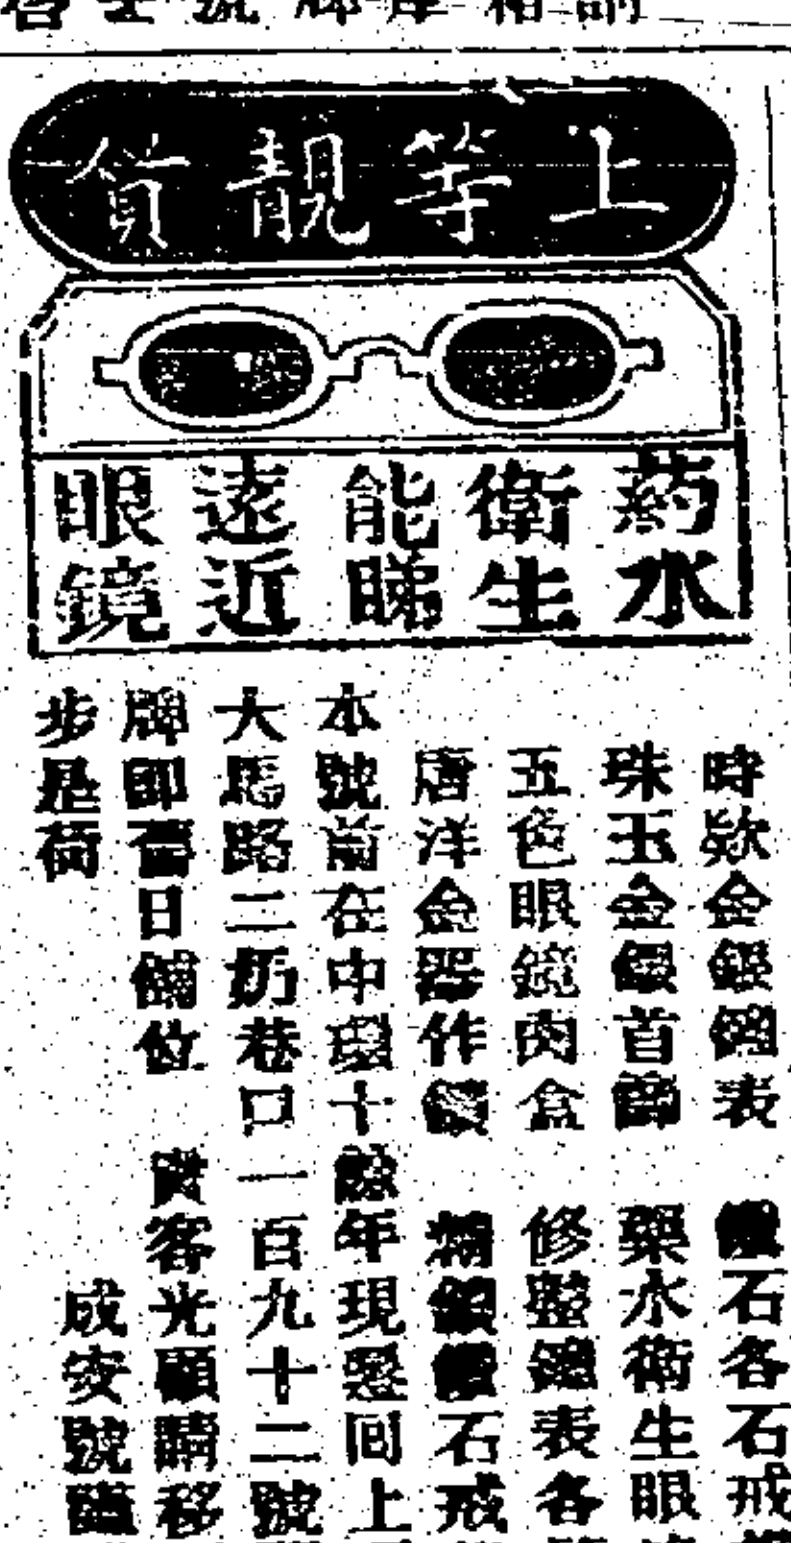 上等靚貨
藥水
衛生
能睇
遠近
眼鏡
時款金銀鐘表 鑽石各石戒
珠玉金銀首飾 藥水衛生眼
五色眼鏡肉盒 修整鐘表各
唐洋金器作鑲 鑽石戒
本號前在中環十餘年現遷回上
大馬路二奶巷口一百九十二號
牌即舊日舖位 貴客光顧請移
步是荷 成安號謹